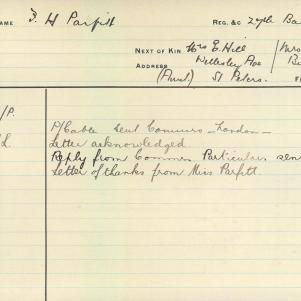 NAME F. H Parfitt REG. &C 27th Ba
NEXT OF KIN Mrs E. Hill Mrs
ADDRESS Wellesley Ave Be
(Aunt) St Peters. F
/P.
P/Cable sent Commrs London
L. Letter acknowledged
Reply from Commrs. Particulars sen
Letter of thanks from Miss Parfitt.